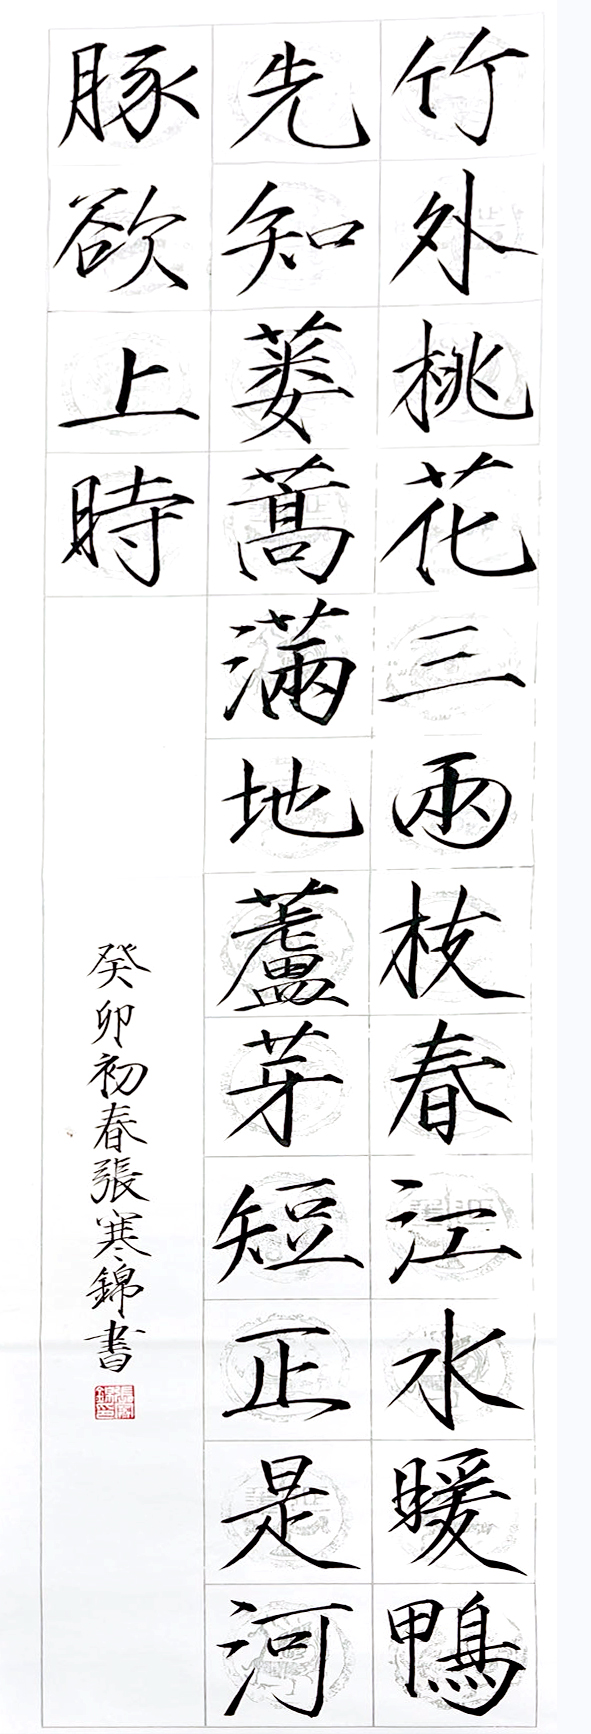 竹外桃花三兩枝春江水暖鴨
先知蔞蒿滿地蘆芽短正是河
豚欲上時
癸卯初春張寒錦書